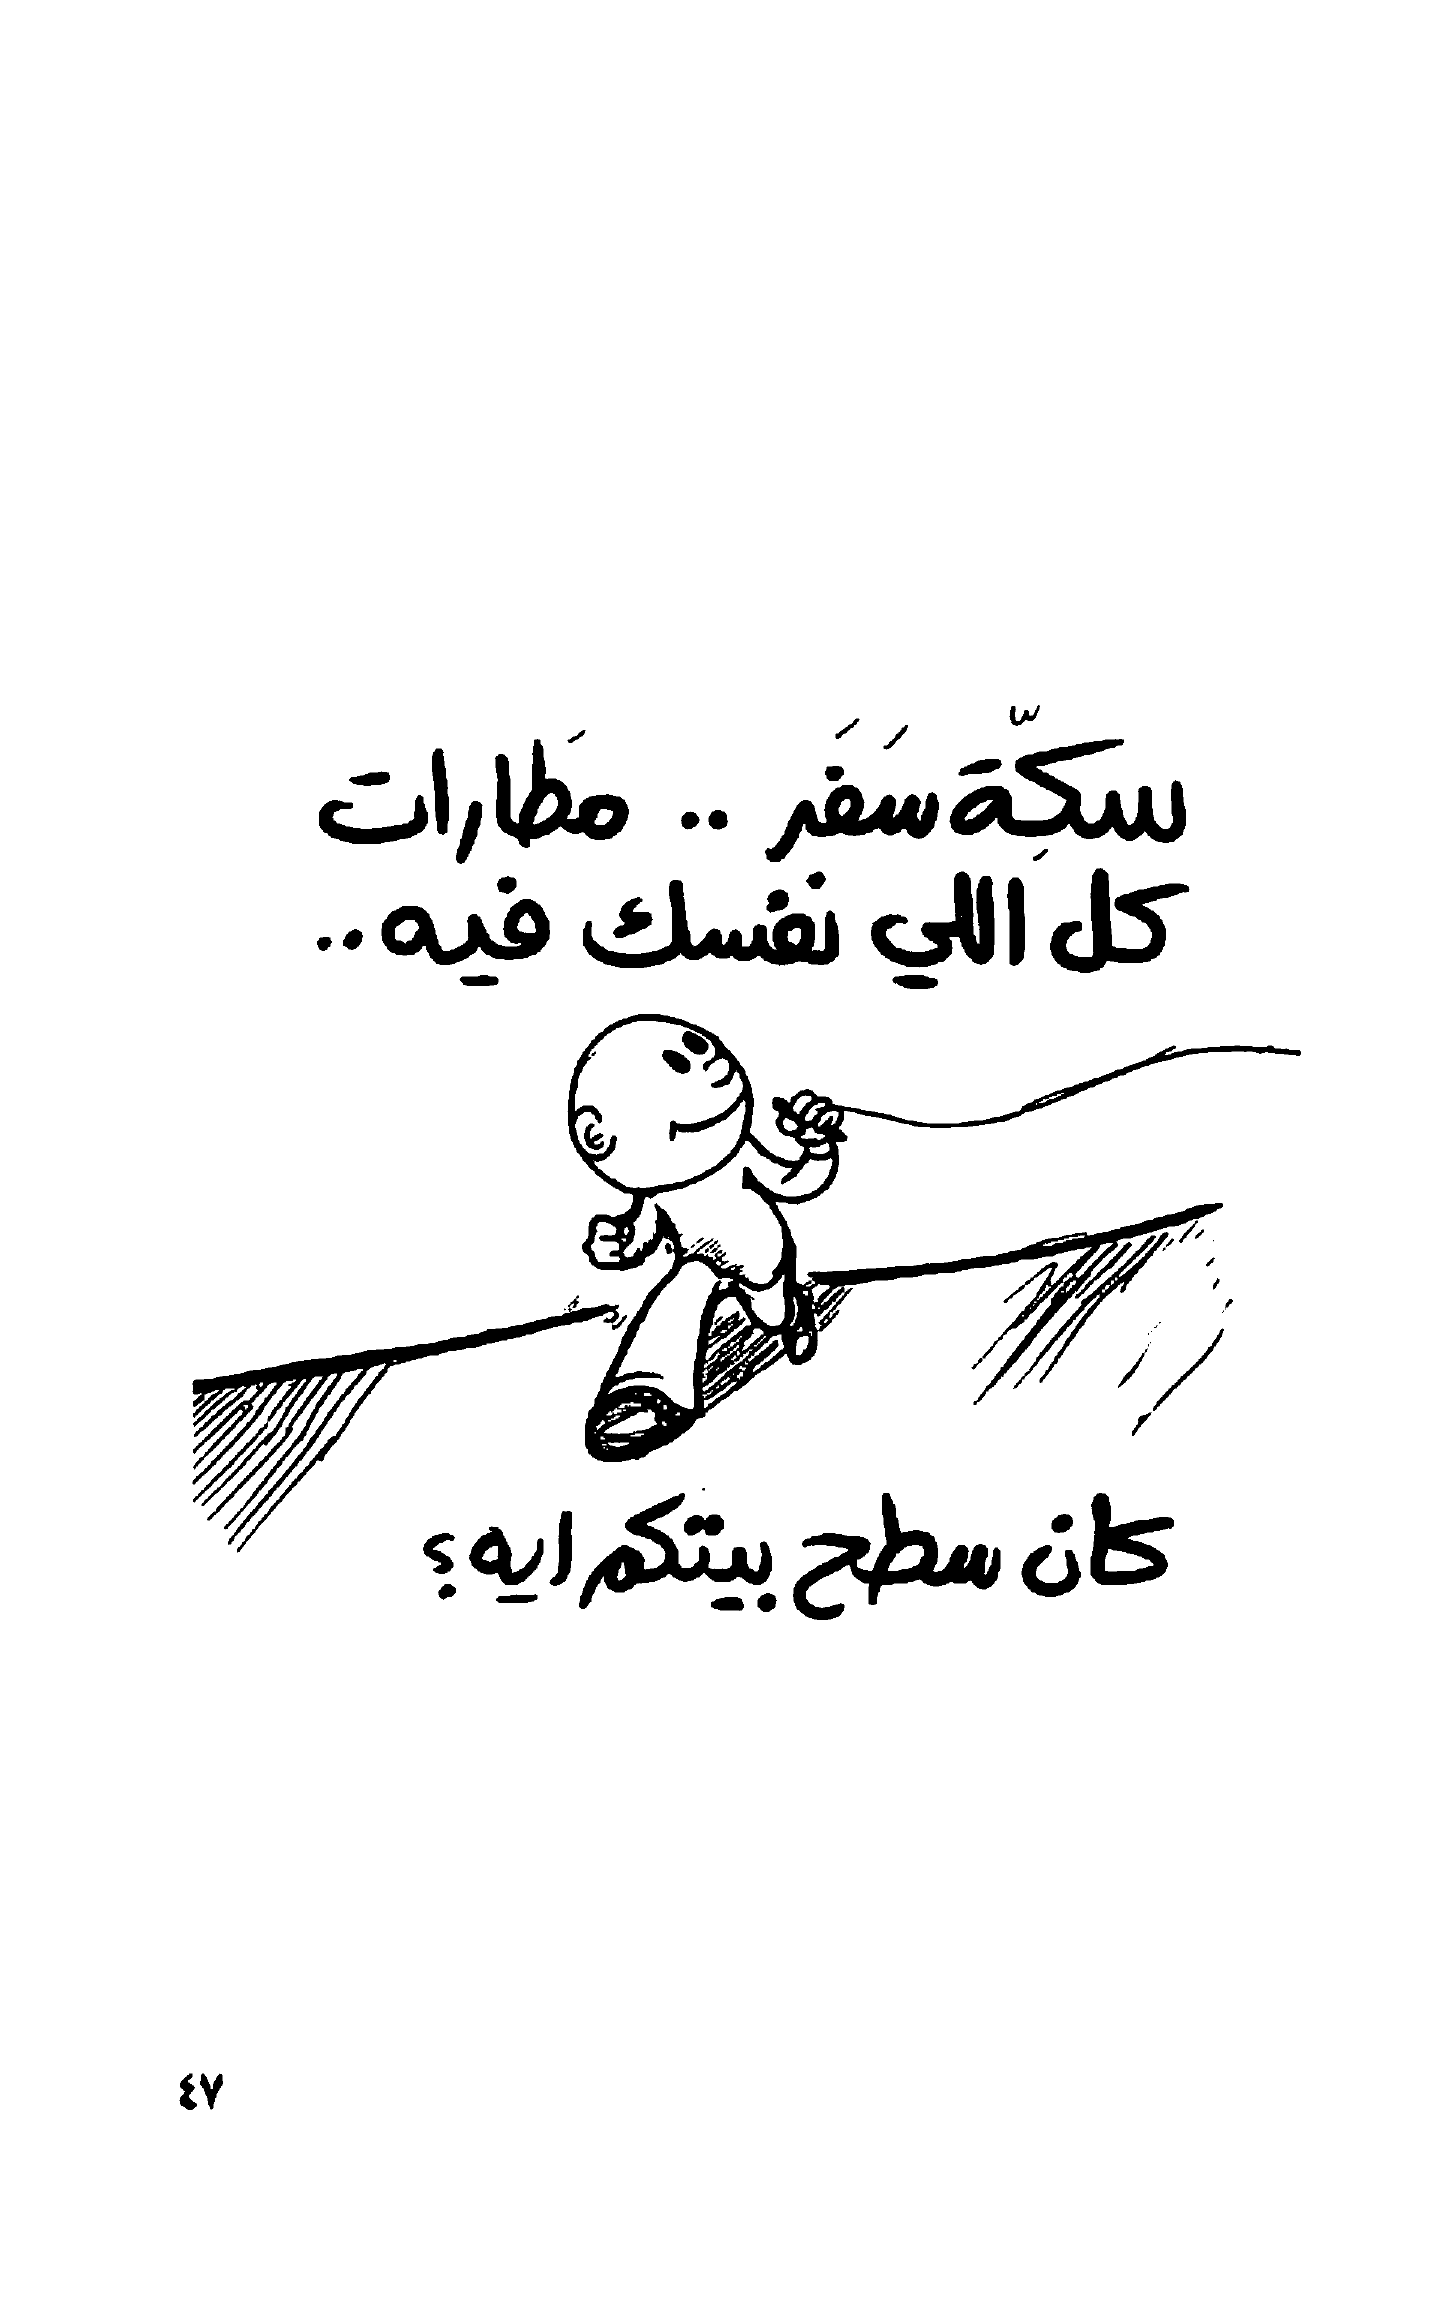 سكّة سَفَر .. مَطارات
كل اللي نفسك فيه ..
كان سطح بيتكم ايه؟
٤٧